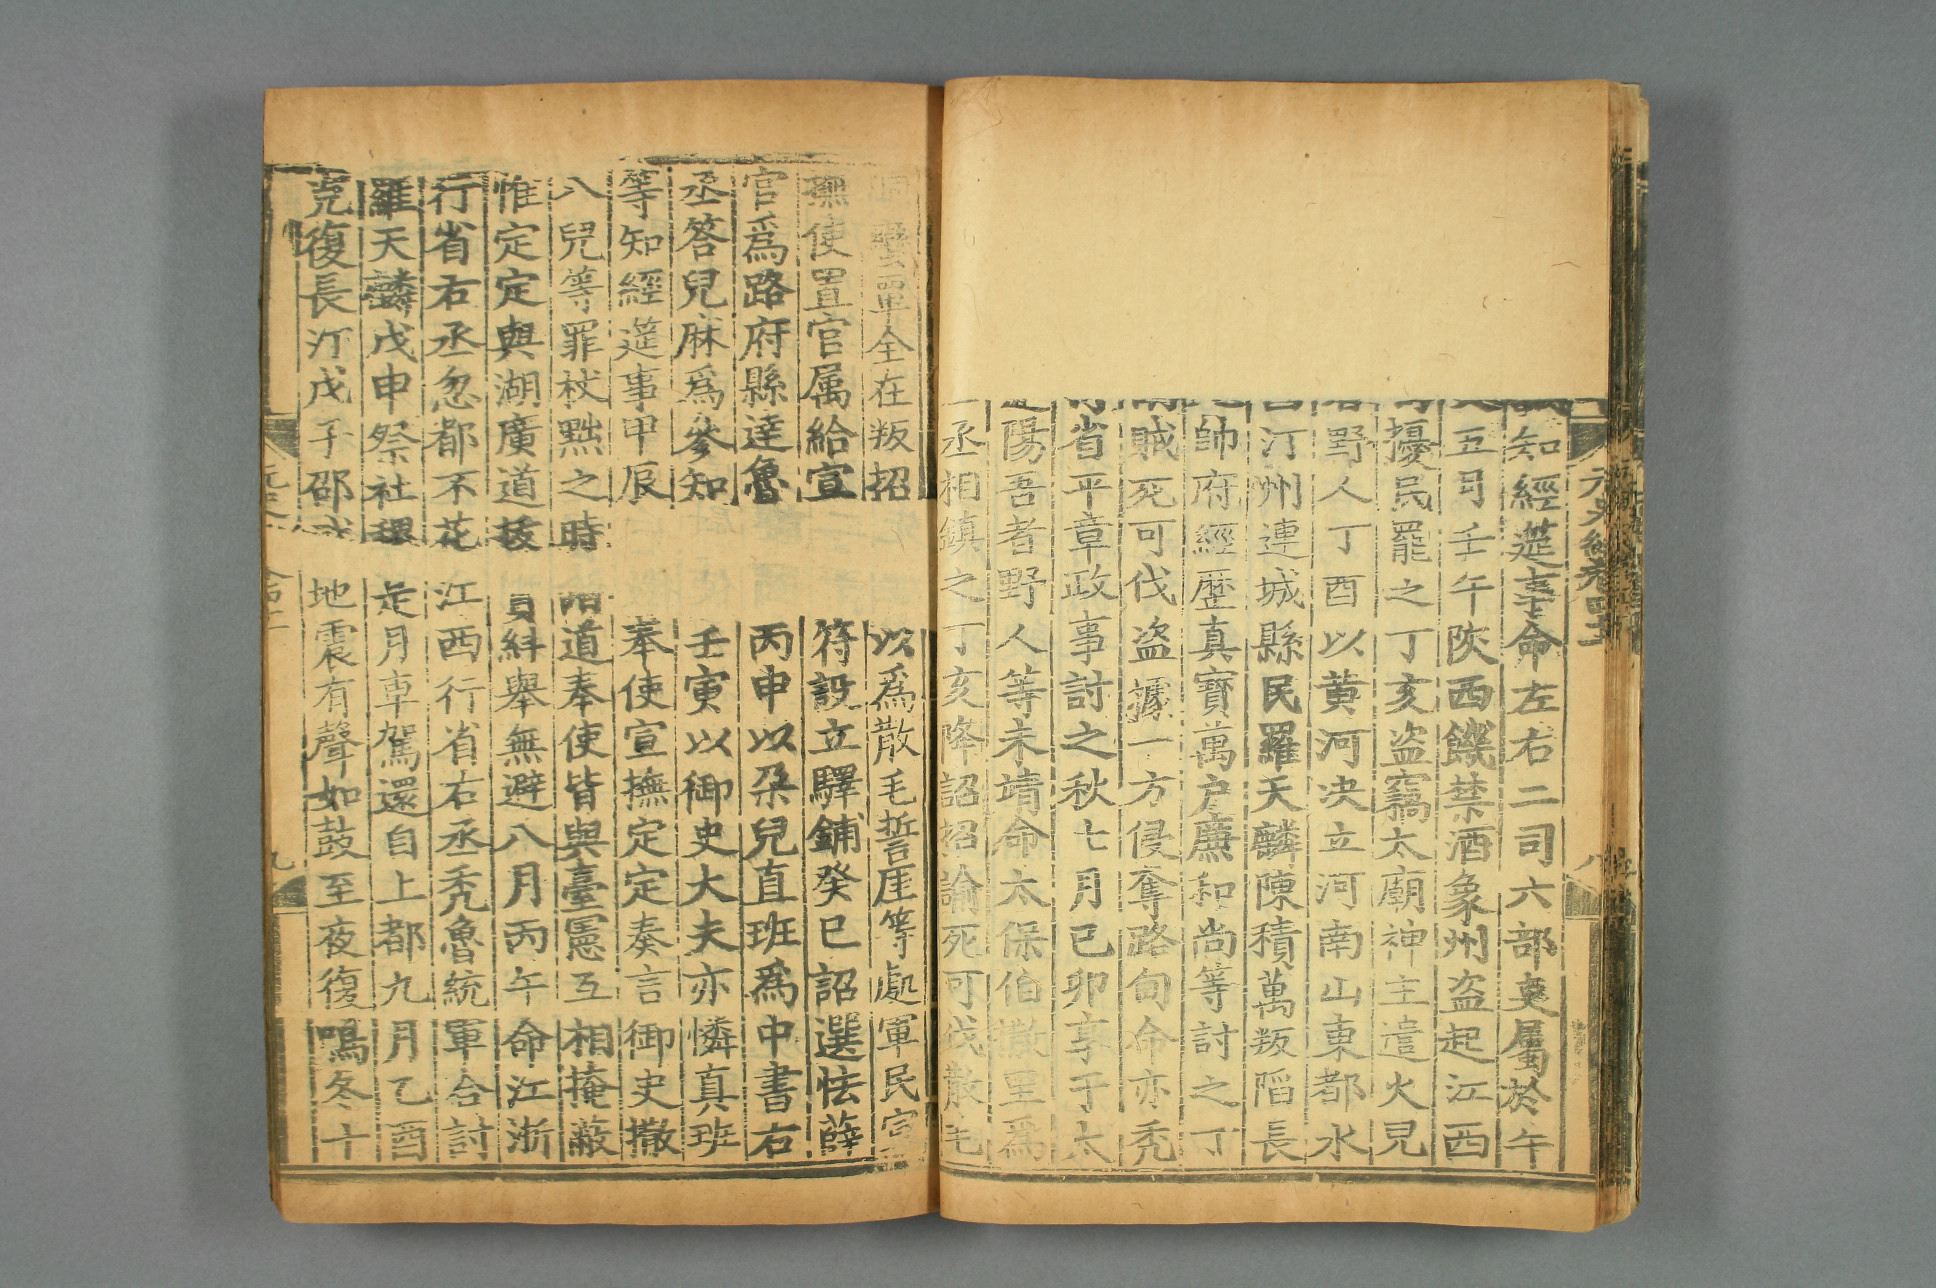 元史紀卷四十一 八
知經筵事命左右二司六部吏屬於午
五月壬午陜西饑禁酒象州盗起江西
擾民罷之丁亥盗竊太廟神主遣火兒
野人丁酉以黄河决立河南山東都水
汀州連城縣民羅天麟陳積萬叛陷長
帥府經歷真寶萬户廉和尚等討之丁
賊死可伐盗據一方侵奪路甸命亦秃
省平章政事討之秋七月己卯享于太
陽吾者野人等未靖命太保伯撒里爲
丞相鎮之丁亥降詔招諭死可伐散毛
洞蠻覃全在叛招以爲散毛誓厓等處軍民宣
撫使置官属給宣符設立驛鋪癸巳詔選怯薛
官爲路府縣達魯丙申以朶兒直班爲中書右
丞答兒麻爲參知壬寅以御史大夫亦憐真班
等知經筵事甲辰奉使宣撫定定奏言御史撒
八兒等罪杖黜之時諸道奉使皆與臺憲互相掩蔽
惟定定與湖廣道拔實糾舉無避八月丙午命江浙
行省右丞忽都不花江西行省右丞秃魯統軍合討
羅天麟戊申祭社稷是月車駕還自上都九月乙酉
克復長汀戊子邵武地震有聲如鼓至夜復鳴冬十
九